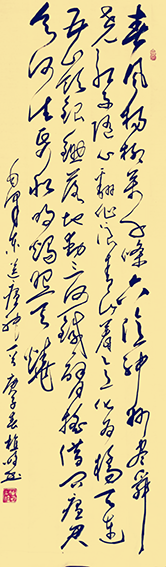 春风杨柳万千条六亿神州尽舜
尧红雨随心翻作浪青山着意化为桥天连
五岭银锄落地动三河铁臂摇借问瘟君
欲何往纸船明烛照天烧
毛泽东送瘟神 庚子春